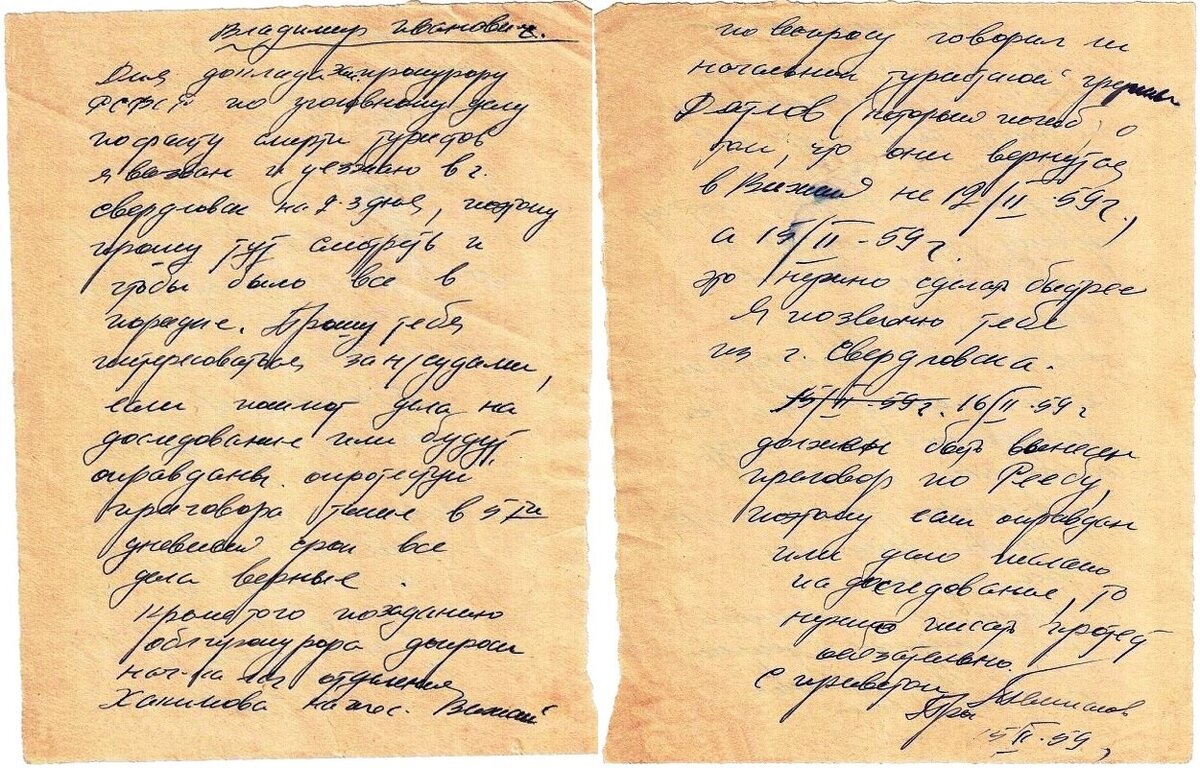 Владимир Иванович.
Для доклада за прокурору
РСФСР по уголовному делу
по факту смерти туристов
я вызван и уезжаю в г.
Свердловск на 2-3 дня, поэтому
прошу тут смотреть и
чтобы было все в
порядке. Прошу тебя
интересоваться за н/судами,
если пошлют дела на
доследование или будут
оправданы опротестуй
приговора также в 5ти
дневный срок все
дела верные.
Кроме того по заданию
облпрокурора допроси
нач-ка отделения
Хакимова на пос. Вижай
по вопросу говорил ли
начальник туристской группы
Дятлов (который погиб) о
том, что они вернутся
в Вижай не 12/II-59г.,
а 15/II-59г.
это нужно сделать быстрее
Я позвоню тебе
из г. Свердловска.
15/II-59г. 16/II-59г
должен быть вынесен
приговор по
поэтому если оправдан
или дело послано
на доследование, то
нужно писать протест
обязательно.
С приветом Темпалов
15/II-59,